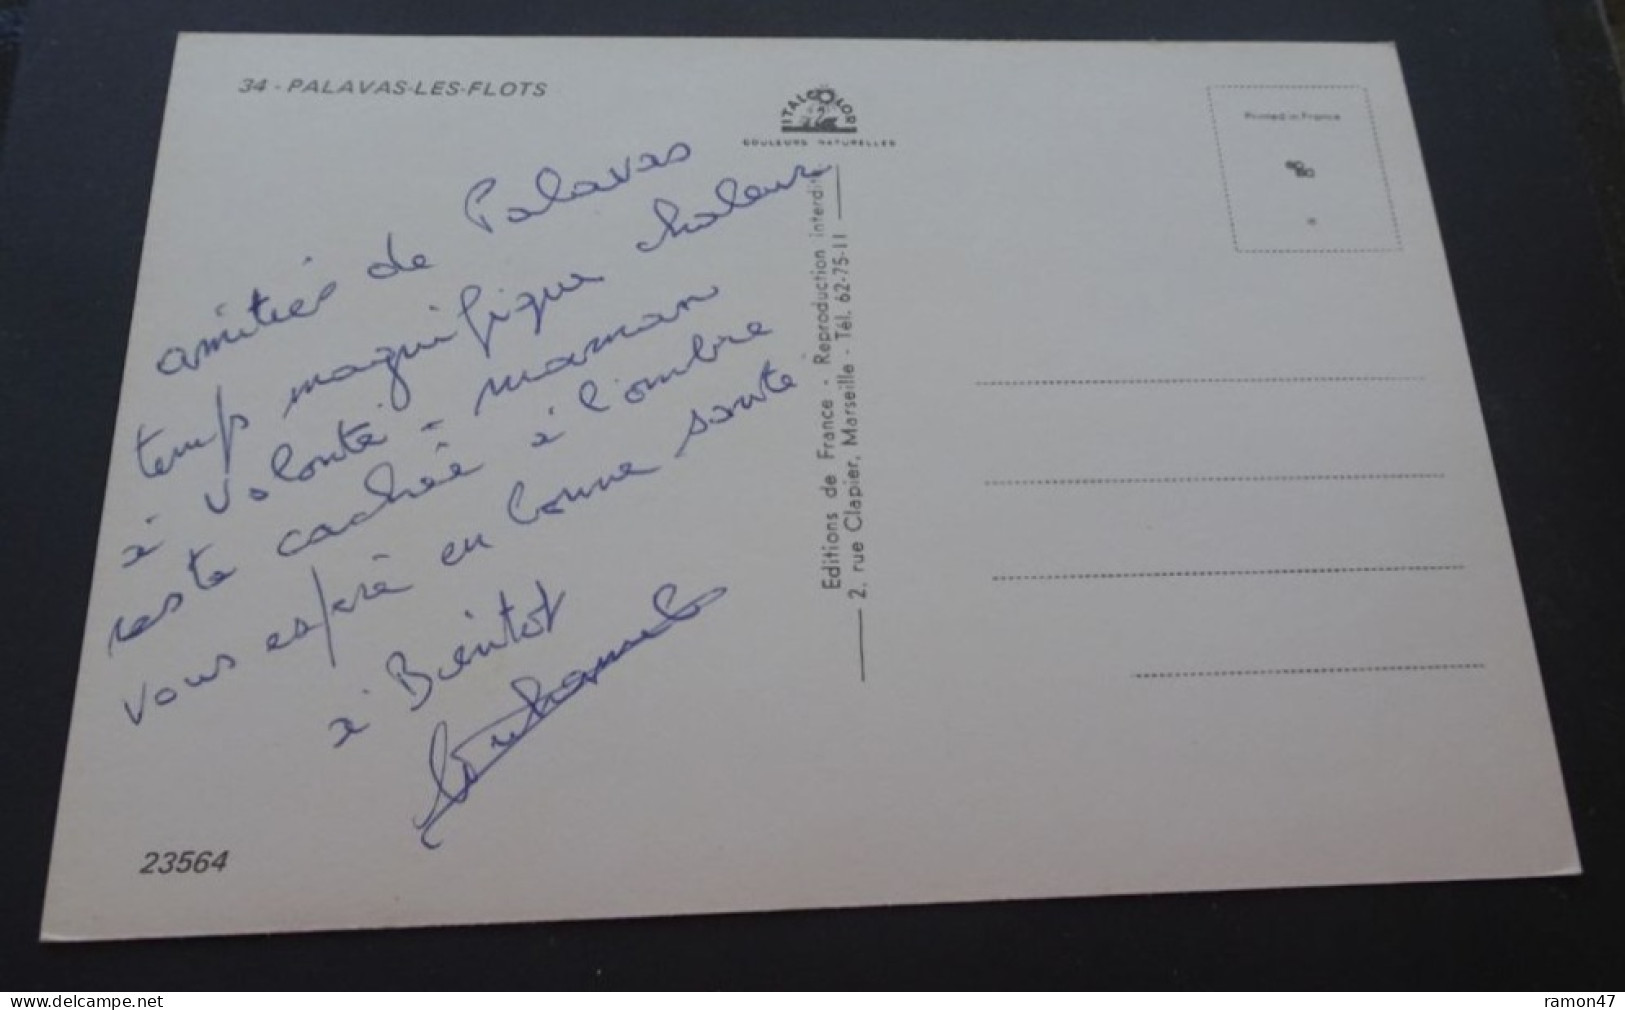 34 - PALAVAS-LES-FLOTS
amitiés de Palavas
temps magnifique chaleur
à volonté - maman
reste cachée à l'ombre
vous espère en bonne santé
à Bientot
23564
ITALCOLOR
COULEURS NATURELLES
Editions de France - Reproduction interdite
2, rue Clapier, Marseille - Tél. 62-75-11
Printed in France
www.delcampe.net
ramon47